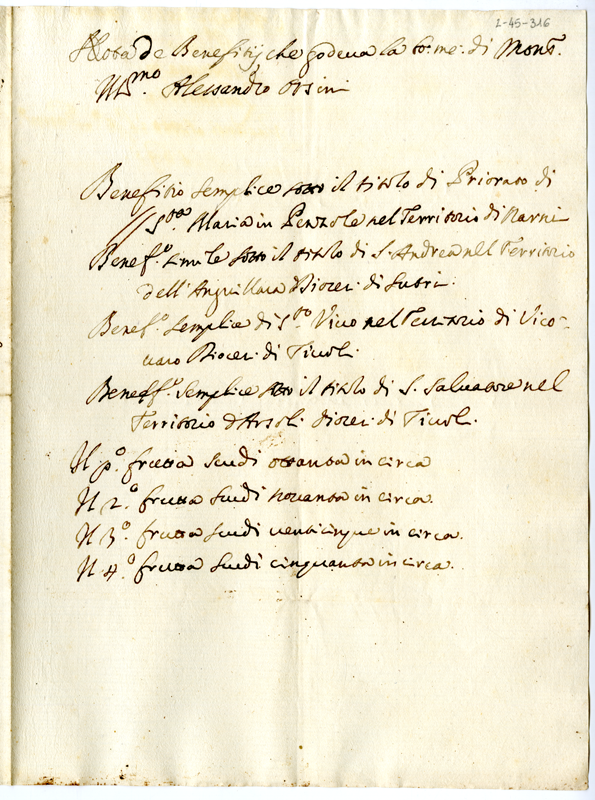 2-45-316
Nota de Benefitij che godeva la bo: me: di Mons.r
Ill.mo Alessandro Orsini
Benefitio semplice sotto il titolo di Priorato di
S.ta Maria in Penzole nel Territorio di Narni
Benef.o simile sotto il titolo di S. Andrea nel Territorio
dell'Anguillara Dioces: di Sutri.
Benef.o semplice di S.to Vito nel Territorio di Vico-
varo Dioces: di Tivoli.
Benef.o semplice sotto il titolo di S. Salvatore nel
Territorio d'Arsoli dioces: di Tivoli.
Il p.o frutta scudi ottanta in circa
Il 2.o frutta scudi novanta in circa.
Il 3.o frutta scudi venticinque in circa.
Il 4.o frutta scudi cinquanta in circa.